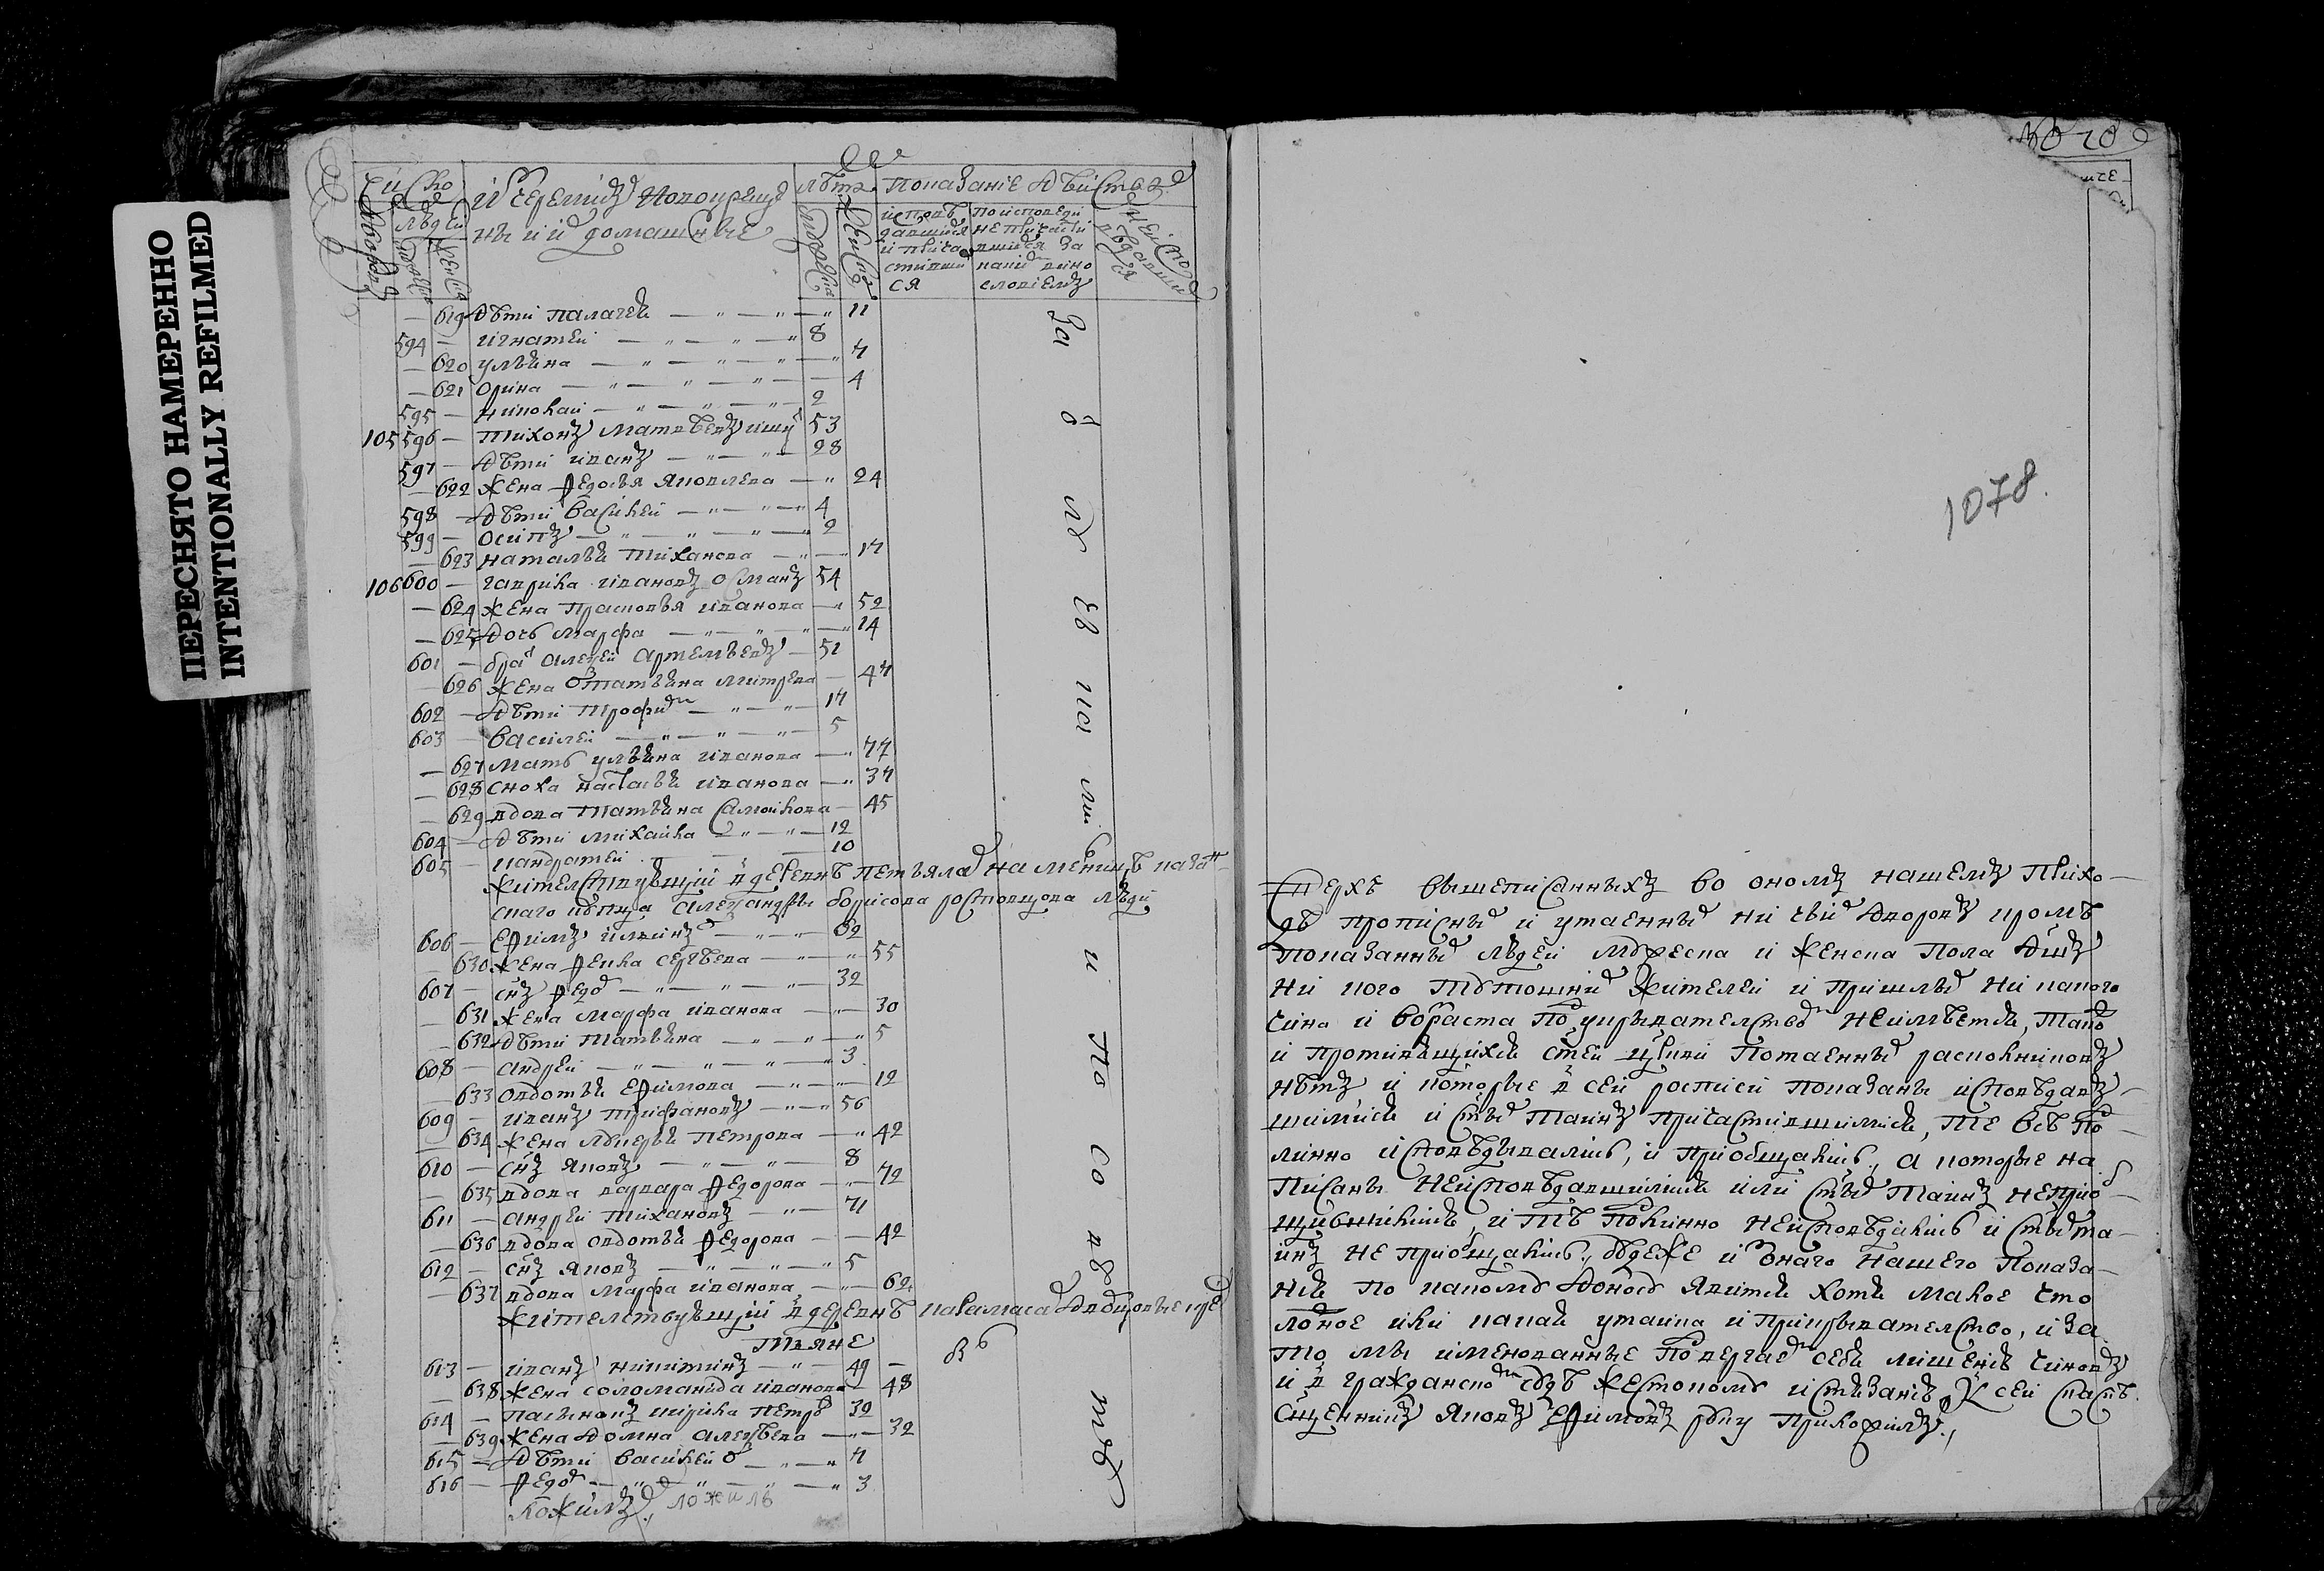 ПЕРЕСНЯТО НАМЕРЕННО
INTENTIONALLY REFILMED
Число
людей
лѣта
показанїе дѣйства
ны и и домашные
исповѣ
давшихся
и прича
стивши
ся
по исповеди
не причасти
вшихся за
каким вино
словїемъ
619 дѣти палагея — " — " — " 11
594 — игнатей — " — " — " 8
— 620 ульяна — " — " — " 7
— 621 орина — " — " — " — 4
595 — николай — " — " — " — 2
105 596 — тихонъ матвѣевъ 53
597 — дѣти иванъ — " — " — 28
— 622 жена федосья яковлева — " 24
598 — дѣти василей — " — " 4
599 — осипъ — " — " — " — " 2
— 623 наталья тиханова — " — 17
106 600 — гаврила ивановъ 54
— 624 жена прасковья иванова — " 52
— 625 дочь марфа — " — " — " 14
601 — бра алексей артемьевъ — 51
— 626 жена татьяна митрева — 47
602 — дѣти трофим — " — " — 17
603 — василей — " — " — " — 5
— 627 мать ульяна иванова — " 77
— 628 сноха настасья иванова — " 37
— 629 вдова татьяна самойлова — 45
604 — дѣти михайла — " — " — 12
605 — кандратей — 10
жителствующїи в деревнѣ
александры борисова ростовцова люди
606 — ефимъ ильинъ — " — " — 62
— 630 жена фекла сергѣева — " — " 55
607 — сынъ федо — " — " — " — 32
— 631 жена марфа иванова — " — 30
— 632 дѣти татьяна — " — " — " 5
608 — андрей — " — " — " — " 3
— 633 овдотья ефимова — " — " — 12
609 — иванъ трифановъ — " — " 56
— 634 жена лукерья петрова — " 42
610 — сынъ яковъ — " — " — 8
— 635 вдова варвара федорова — " 72
611 — андрей тихановъ — " — 71
— 636 вдова овдотья федорова — — 42
612 — сынъ яковъ — " — " — " 5
— 637 вдова марфа иванова — " — 62
жителствующїи в деревнѣ
тьяне
613 — иванъ никитинъ — " — 49
— 638 жена соломанида иванова — 48
614 — кирила петро 32
— 639 жена домна алексѣева — " — 32
615 — дѣти василей — " — " 7
616 — федо — " — " — " 3
1078.
сверхъ вышеписанныхъ во ономъ нашемъ прихо-
дѣ прописны и утаенны ни чьи дворовъ кромѣ
показанны людей мужеска и женска пола душъ
ни кого тутошни жителей и пришлы ни какого
чина и возраста по укрывателством неимѣется, тако
и противящихся стей цркви потаенны расколниковъ
нѣтъ и которые в сей росписи показаны исповѣдавъ-
шимися и сты таинъ причастившимися, те всѣ по-
линно исповѣдывались, и приобщались, а которые на
писаны неисповѣдавшимися или сты таинъ неприо-
щившимися, и тѣ полинно неисповѣдались и сты та-
инъ не приобщались, будеже и з онаго нашего показа-
нїя по какому доносу явится хотя малое что
ложное или какая утайка и прикрывателство, и за
то мы имянованные подвергаем себя лишенїю чиновъ
и в гражданско судѣ жестокому истязанїю, К сей
сщенникъ яковъ ефимовъ руку приложилъ.